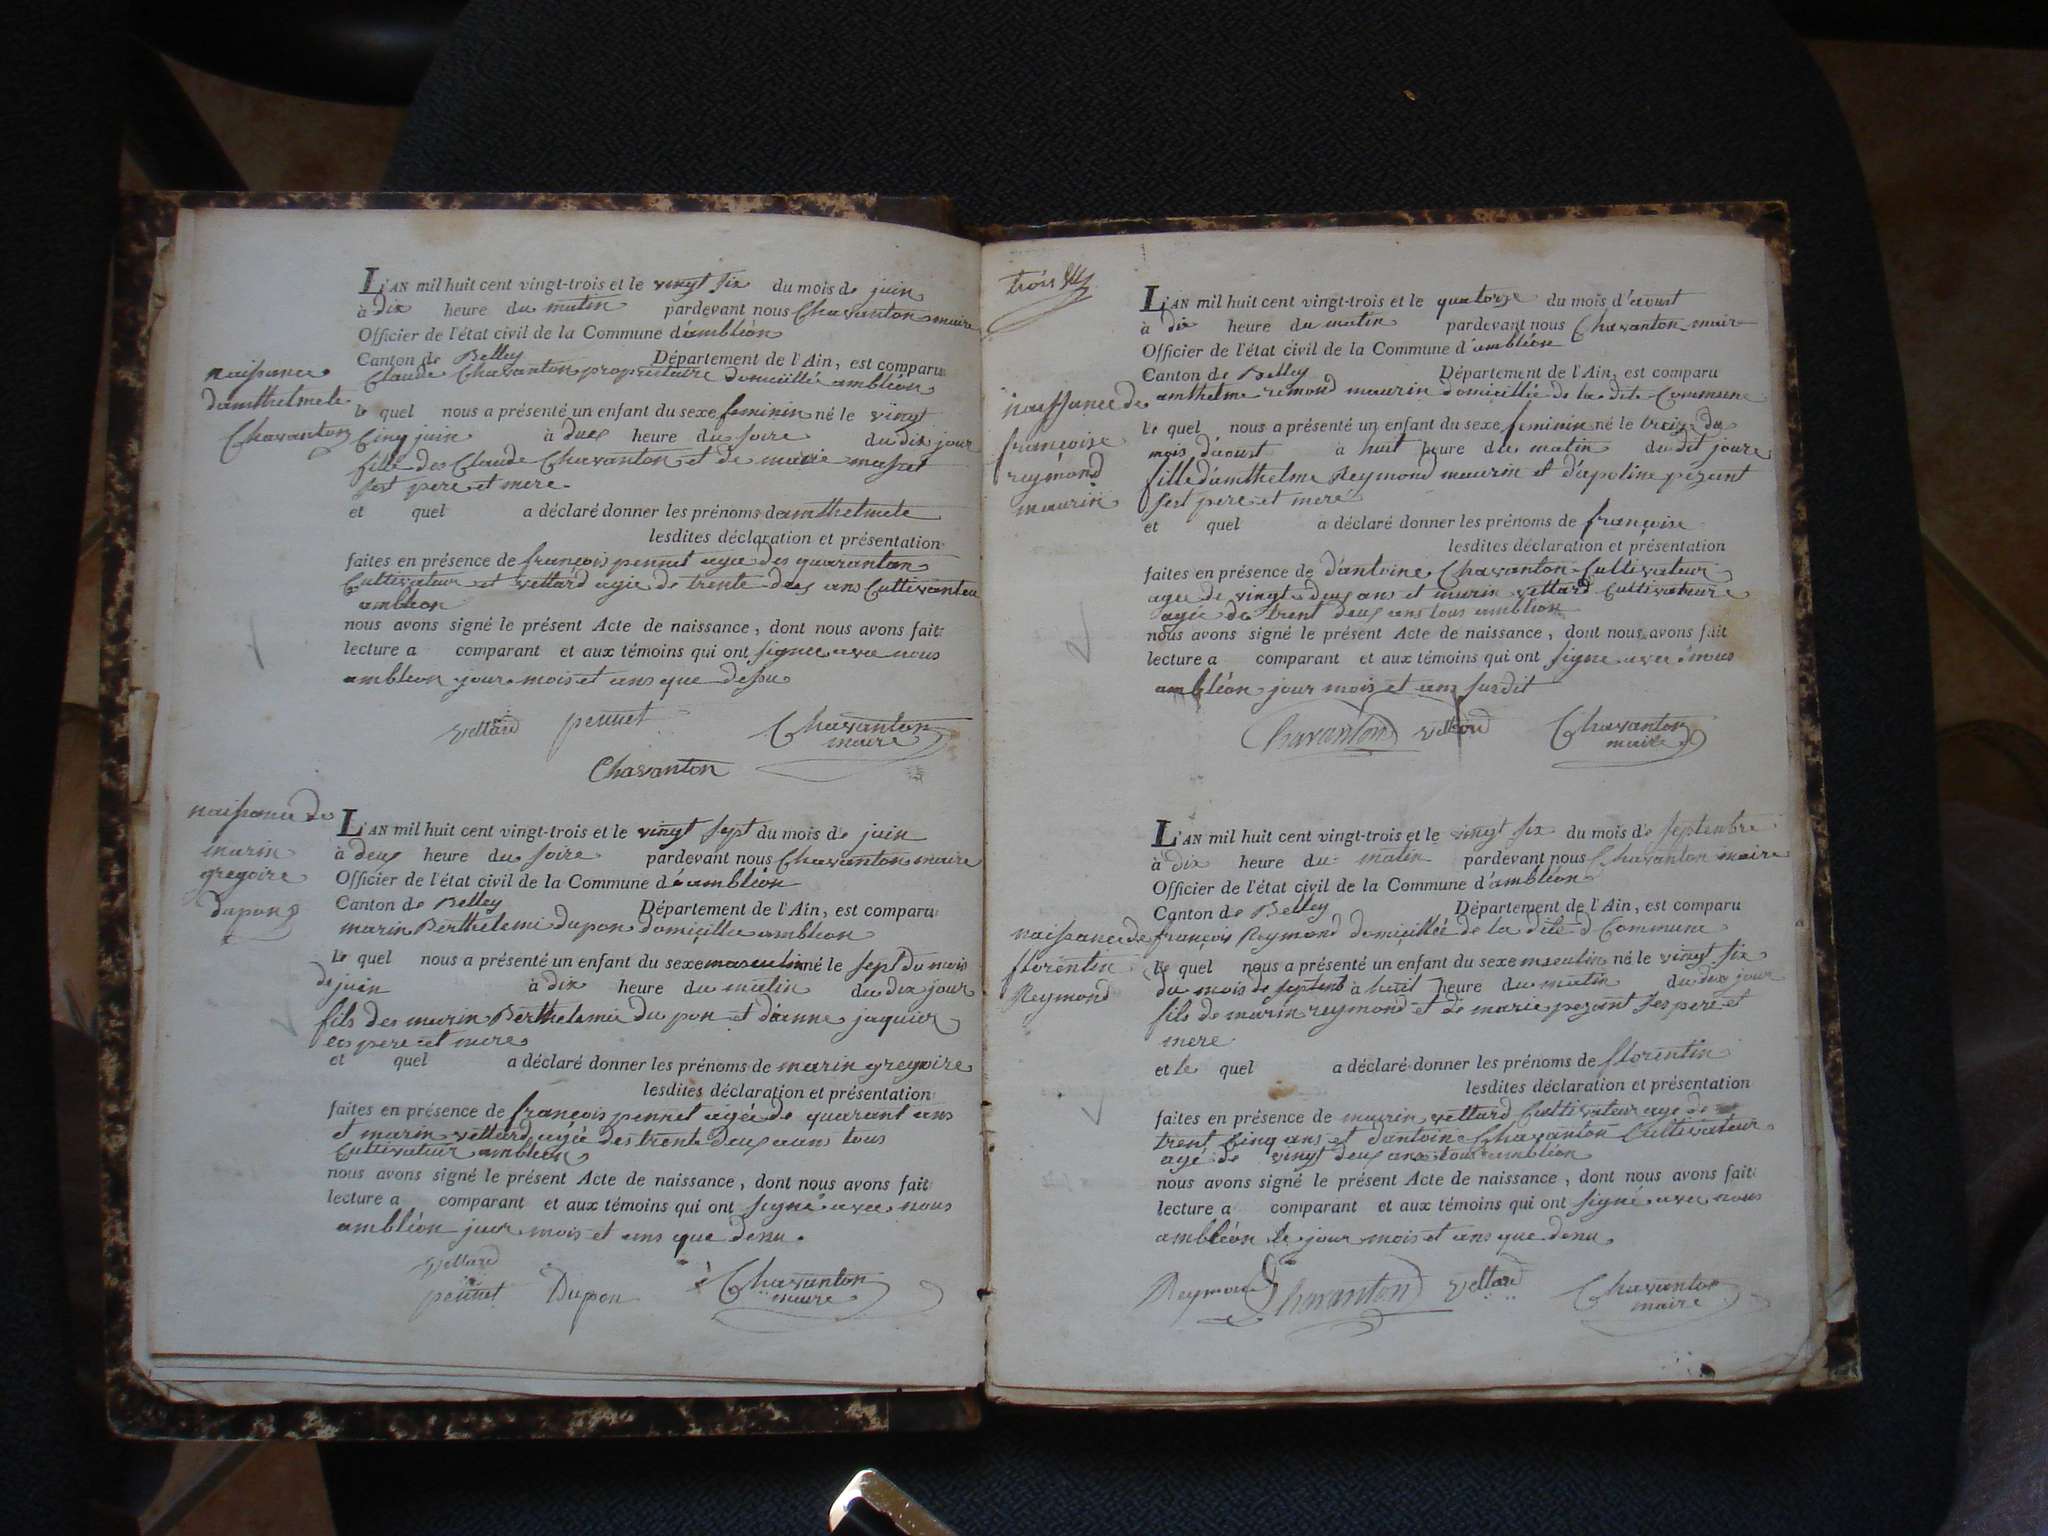 L'AN mil huit cent vingt-trois et le vingt six du mois de juin
à dix heure du matin pardevant nous Chavanton maire
Officier de l'état civil de la Commune d'ambléon
Canton de Belley Département de l'Ain, est comparu
Claude Chavanton propriétaire domicillié ambléon
naissance
damthelmete
Chavanton
le quel nous a présenté un enfant du sexe feminin né le vingt
Cinq juin à deux heure du soire du dix jour
fille des Claude Chavanton et de marie
pere et mere
et quel a déclaré donner les prénoms de amthelmete
lesdites déclaration et présentation
faites en présence de françois pennet agee des quarantan
Cultivateur et vettard agée de trente deux ans Cultivateu
ambléon
nous avons signé le présent Acte de naissance, dont nous avons fait
lecture a comparant et aux témoins qui ont signee avec nous
ambléon jour mois et ans que desu
vettard pennet Chavanton
maire
Chavanton
naissance de
marin
gregoire
dupon
L'AN mil huit cent vingt-trois et le vingt sept du mois de juin
à deux heure du soire pardevant nous Chavanton maire
Officier de l'état civil de la Commune d'ambléon
Canton de Belley Département de l'Ain, est comparu
marin Berthelemi dupon domicillie ambléon
le quel nous a présenté un enfant du sexe masculin né le sept du mois
de juin à dix heure du matin du dix jour
fils des marin Berthelemie du pon et d'anne jaquier
pere et mere
et quel a déclaré donner les prénoms de marin gregoire
lesdites déclaration et présentation
faites en présence de françois pennet agée de quarant ans
et marin vettard agée des trente deux ans tous
Cultivateur ambléon
nous avons signé le présent Acte de naissance, dont nous avons fait
lecture a comparant et aux témoins qui ont signé avec nous
ambléon jour mois et ans que desu
vettard
pennet Dupon Chavanton
maire
trois
L'AN mil huit cent vingt-trois et le quatorze du mois d'aoust
à dix heure du matin pardevant nous Chavanton mair
Officier de l'état civil de la Commune d'ambléon
Canton de Belley Département de l'Ain, est comparu
amthelme remond maurin domicillié de la dite Commune
naissance de
françoise
reymond
maurin
le quel nous a présenté un enfant du sexe feminin né le treize du
mois d'aoust à huit heure du matin du dit joure
fille d'amthelme Reymond maurin et d'apoline pezant
pere et mere
et quel a déclaré donner les prénoms de françoise
lesdites déclaration et présentation
faites en présence de d'antoine Chavanton Cultivateur
agee de vingt deux ans et marin vettard Cultivateure
agée de trent deux ans tous ambléon
nous avons signé le présent Acte de naissance, dont nous avons fait
lecture a comparant et aux témoins qui ont signe avec nous
ambléon jour mois et ans susdit
Chavanton vettard Chavanton
maire
L'AN mil huit cent vingt-trois et le vingt six du mois de septenbre
à dix heure du matin pardevant nous Chavanton maire
Officier de l'état civil de la Commune d'ambléon
Canton de Belley Département de l'Ain, est comparu
françois Reymond domicillée de la dite Commune
naissance de
florentin
Reymond
le quel nous a présenté un enfant du sexe masculin né le vingt six
du mois de septenb à huit heure du matin du dix jour
fils de marin reymond et de marie pezant ses pere et
mere
et le quel a déclaré donner les prénoms de florentin
lesdites déclaration et présentation
faites en présence de marin vettard Cultivateur age de
trent Cinq ans et d'antoine Chavanton Cultivateur
agé de vingt deux ans tous ambléon
nous avons signé le présent Acte de naissance, dont nous avons fait
lecture a comparant et aux témoins qui ont signé avec nous
ambléon le jour mois et ans que desu
Reymond Chavanton vettard Chavanton
maire